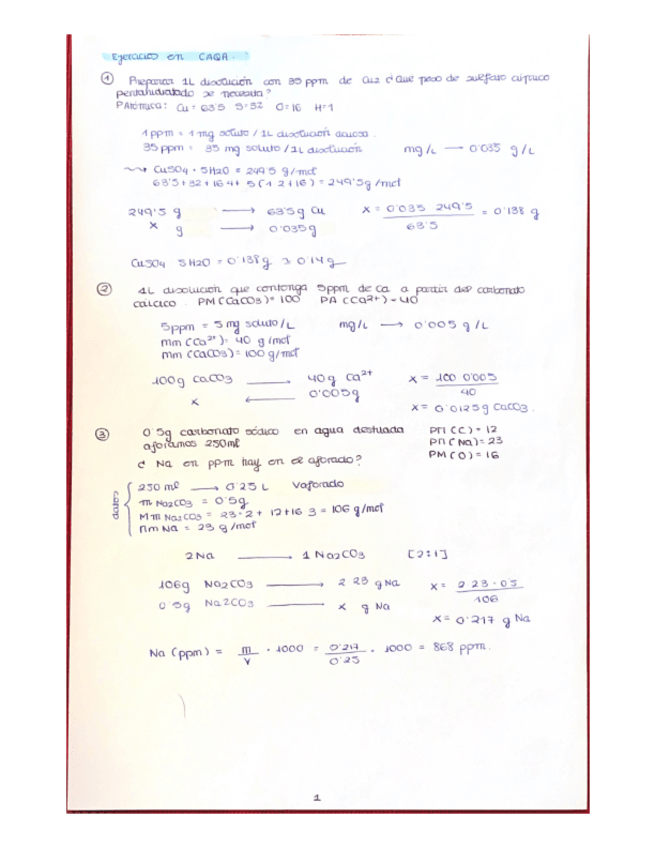 Ejercicios en CAQA.
① Preparar 1L disolución con 35 ppm de Cu2 ¿Que peso de sulfato cúprico
pentahidratado se necesita?
P Atómica: Cu = 63'5 S=32 O=16 H=1
1 ppm = 1 mg soluto / 1L disolución acuosa.
35 ppm = 35 mg soluto / 1L disolución mg/L → 0'035 g/L
CuSO4 · 5H2O = 249'5 g/mol
63'5 + 32 + 16·4 + 5(1·2+16) = 249'5 g/mol
249'5 g → 63'5g Cu x = 0'035 · 249'5 / 63'5 = 0'138 g
x g → 0'035g
CuSO4 5H2O = 0'138g ≈ 0'14g
② 1L disolución que contenga 5ppm de Ca a partir del carbonato
cálcico. PM (CaCO3) = 100 PA (Ca2+) = 40
5ppm = 5 mg soluto/L mg/L → 0'005 g/L
mm (Ca2+) = 40 g/mol
mm (CaCO3) = 100 g/mol
100g CaCO3 → 40g Ca2+ x = 100 · 0'005 / 40
x ← 0'005g
x = 0'0125g CaCO3.
③ 0'5g carbonato sódico en agua destilada PM (C) = 12
aforamos 250ml PM (Na) = 23
¿ Na en ppm hay en el aforado? PM (O) = 16
datos
250 ml → 0'25 L Vaforado
m Na2CO3 = 0'5g
Mm Na2CO3 = 23·2 + 12+16·3 = 106 g/mol
mm Na = 23 g/mol
2Na → 1 Na2CO3 [2:1]
106g Na2CO3 → 2·23 g Na x = 2·23·0'5 / 106
0'5g Na2CO3 → x g Na
x = 0'217 g Na
Na (ppm) = m / V · 1000 = 0'217 / 0'25 · 1000 = 868 ppm.
1